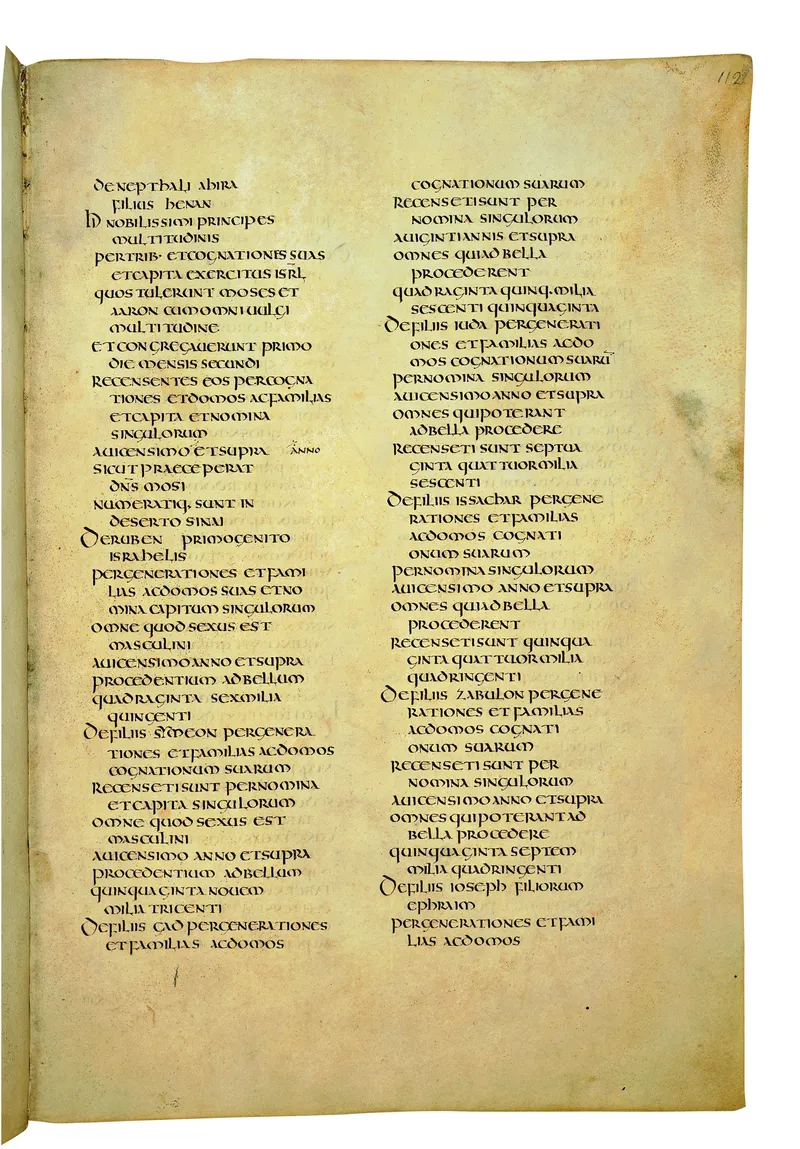 112
DE NEPTHALI AHIRA
FILIUS HENAN
HI NOBILISSIMI PRINCIPES
MULTITUDINIS
PER TRIB· ET COGNATIONES SUAS
ET CAPITA EXERCITUS ISRL
QUOS TULERUNT MOSES ET
AARON CUM OMNI UULGI
MULTITUDINE
ET CONGREGAUERUNT PRIMO
DIE MENSIS SECUNDI
RECENSENTES EOS PER COGNA
TIONES ET DOMOS AC FAMILIAS
ET CAPITA ET NOMINA
SINGULORUM
A UICENSIMO ET SUPRA ANNO
SICUT PRAECEPERAT
DNS MOSI
NUMERATIQ· SUNT IN
DESERTO SINAI
DE RUBEN PRIMOGENITO
ISRAHELIS
PER GENERATIONES ET FAMI
LIAS AC DOMOS SUAS ET NO
MINA CAPITUM SINGULORUM
OMNE QUOD SEXUS EST
MASCULINI
A UICENSIMO ANNO ET SUPRA
PROCEDENTIUM AD BELLUM
QUADRAGINTA SEX MILIA
QUINGENTI
DE FILIIS SYMEON PER GENERA
TIONES ET FAMILIAS AC DOMOS
COGNATIONUM SUARUM
RECENSETI SUNT PER NOMINA
ET CAPITA SINGULORUM
OMNE QUOD SEXUS EST
MASCULINI
A UICENSIMO ANNO ET SUPRA
PROCEDENTIUM AD BELLUM
QUINQUAGINTA NOUEM
MILIA TRICENTI
DE FILIIS GAD PER GENERATIONES
ET FAMILIAS AC DOMOS
COGNATIONUM SUARUM
RECENSETI SUNT PER
NOMINA SINGULORUM
A UIGINTI ANNIS ET SUPRA
OMNES QUI AD BELLA
PROCEDERENT
QUADRAGINTA QUINQ· MILIA
SESCENTI QUINQUAGINTA
DE FILIIS IUDA PER GENERATI
ONES ET FAMILIAS AC DO
MOS COGNATIONUM SUARŪ
PER NOMINA SINGULORUM
A UICENSIMO ANNO ET SUPRA
OMNES QUI POTERANT
AD BELLA PROCEDERE
RECENSETI SUNT SEPTUA
GINTA QUATTUOR MILIA
SESCENTI
DE FILIIS ISSACHAR PER GENE
RATIONES ET FAMILIAS
AC DOMOS COGNATI
ONUM SUARUM
PER NOMINA SINGULORUM
A UICENSIMO ANNO ET SUPRA
OMNES QUI AD BELLA
PROCEDERENT
RECENSETI SUNT QUINQUA
GINTA QUATTUOR MILIA
QUADRINGENTI
DE FILIIS ZABULON PER GENE
RATIONES ET FAMILIAS
AC DOMOS COGNATI
ONUM SUARUM
RECENSETI SUNT PER
NOMINA SINGULORUM
A UICENSIMO ANNO ET SUPRA
OMNES QUI POTERANT AD
BELLA PROCEDERE
QUINQUAGINTA SEPTEM
MILIA QUADRINGENTI
DE FILIIS IOSEPH FILIORUM
EPHRAIM
PER GENERATIONES ET FAMI
LIAS AC DOMOS